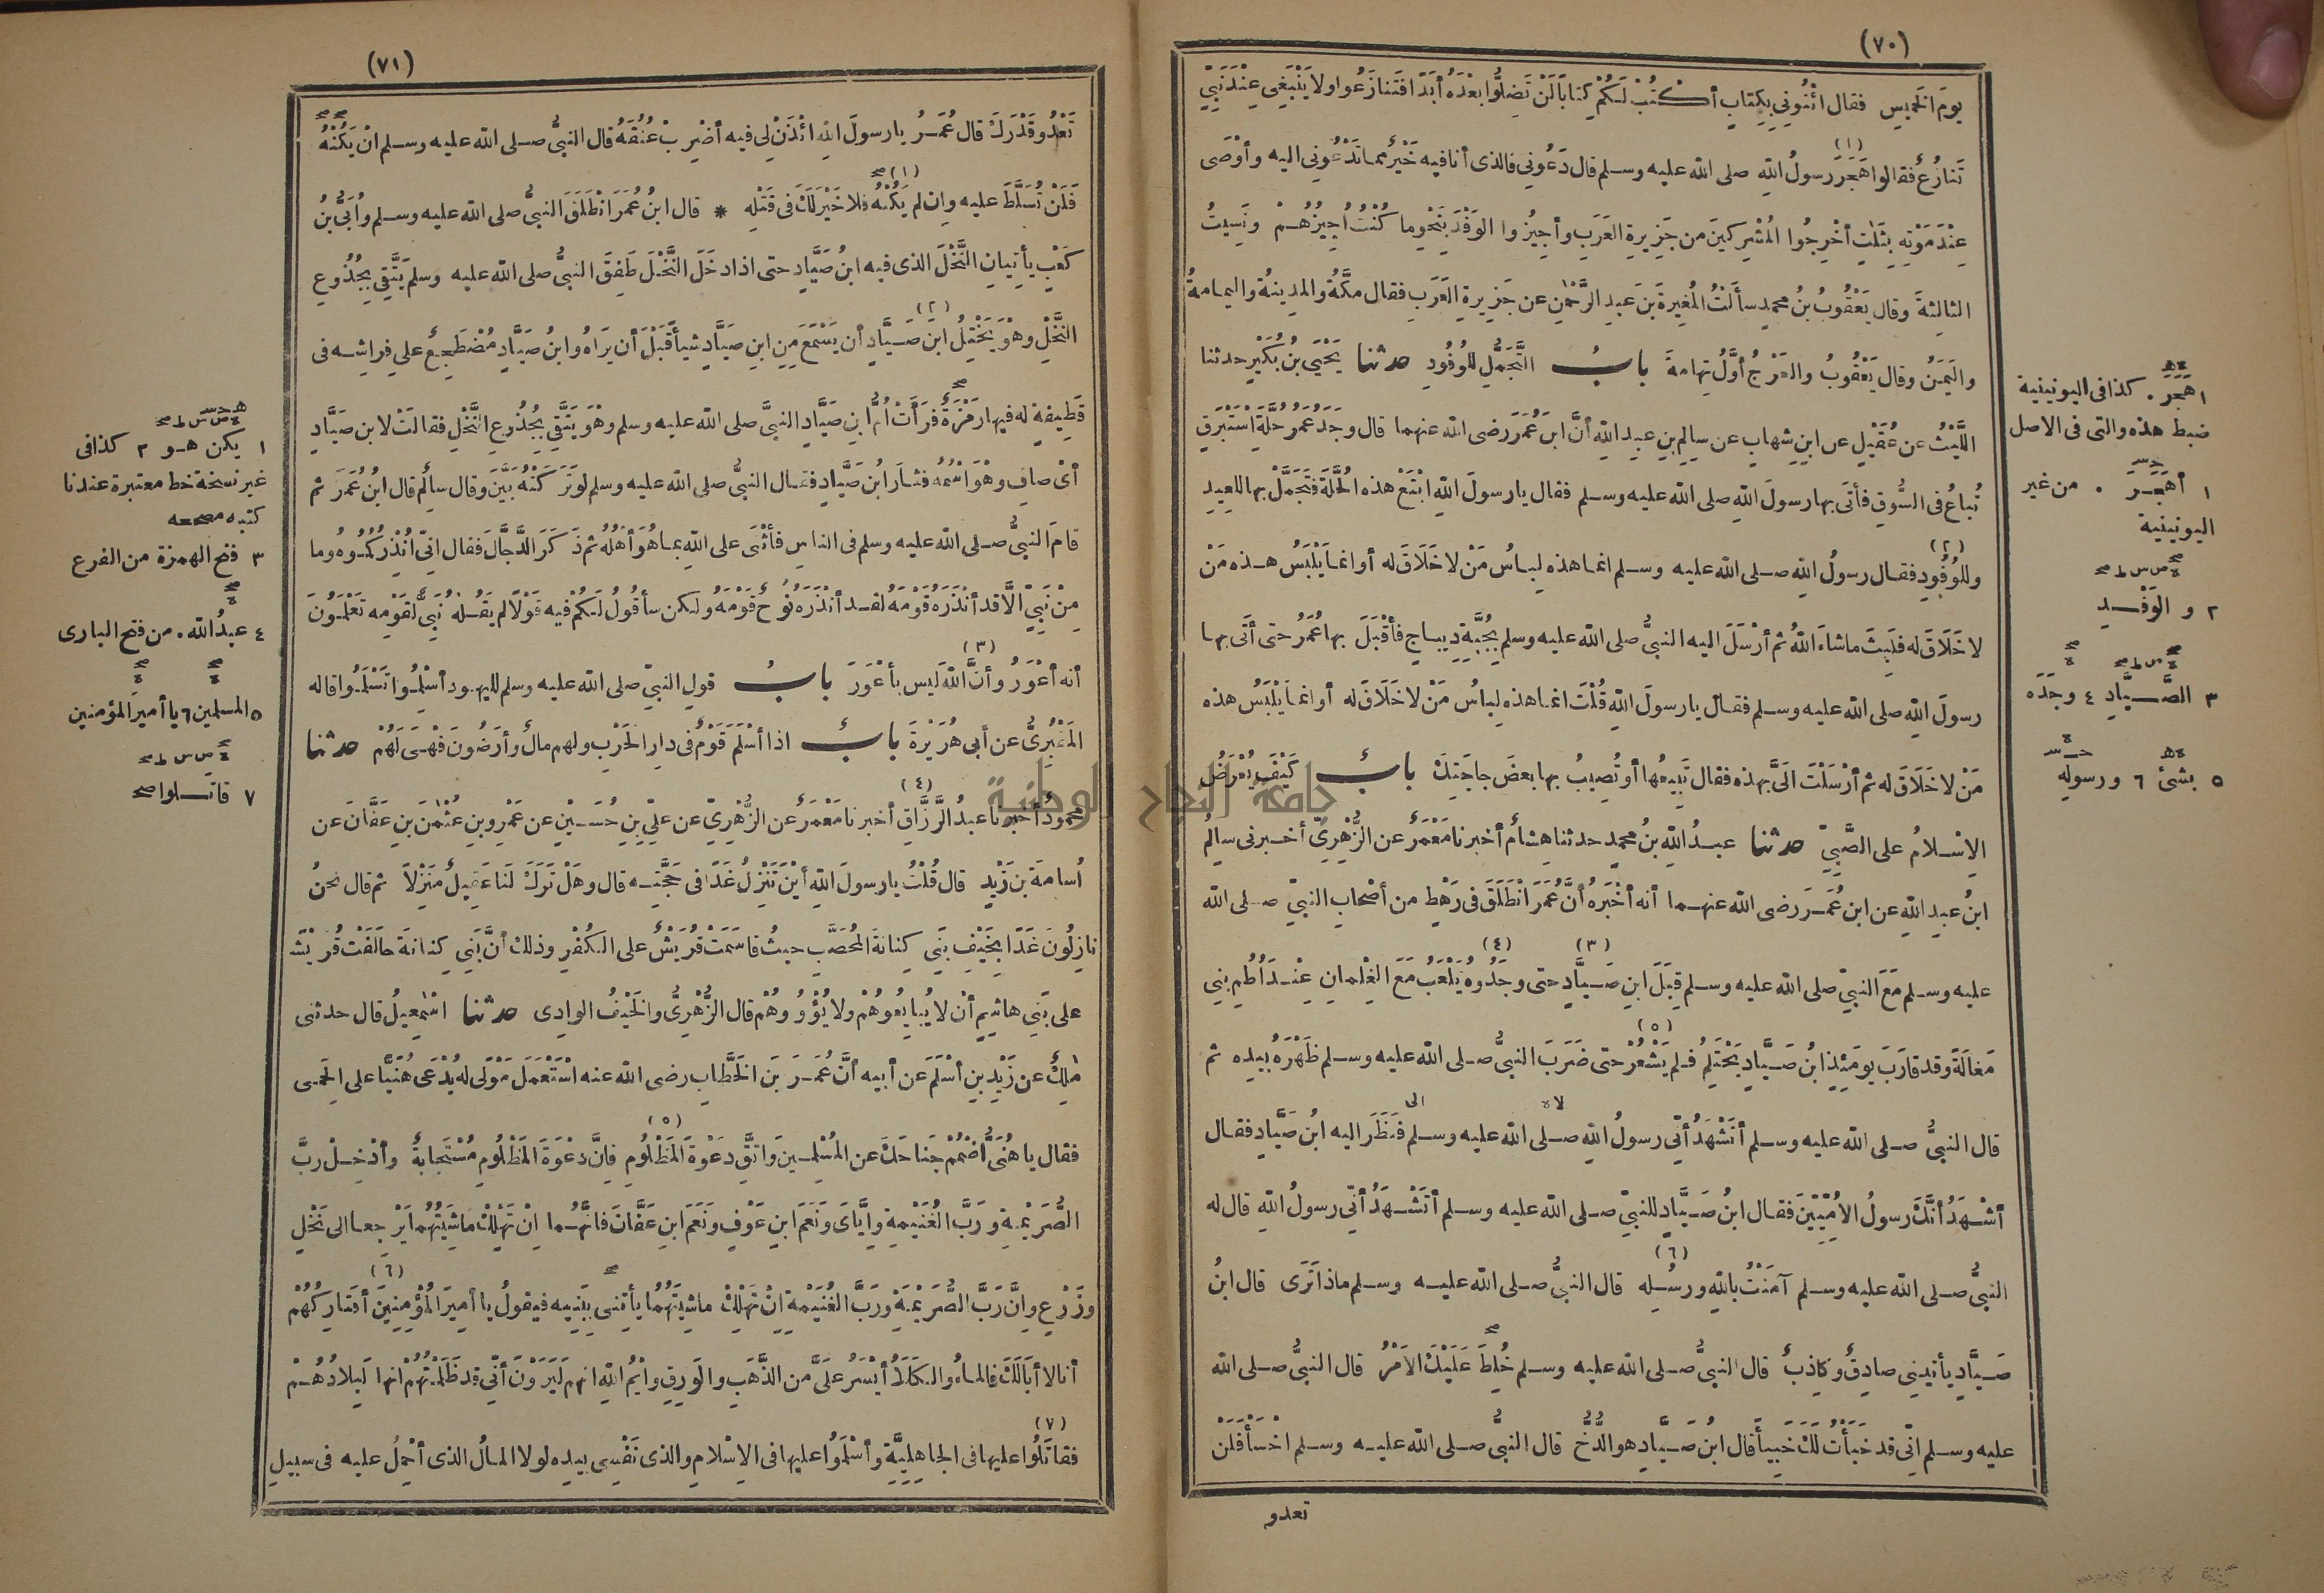 (٧٠)
يومَ الخَمِيسِ فقال ائْتُونِي بِكِتابٍ أكْتُبْ لَكُمْ كِتَابًا لَنْ تَضِلُّوا بَعْدَهُ أَبَدًا فَتَنازَعُوا ولا يَنْبَغِى عِنْدَ نَبِيٍّ
تَنازُعٌ فقالوا هَجَرَ رسولُ اللهِ صلى الله عليه وسلم قال دَعُونِى فالذى أنا فيه خَيْرٌ مما تَدْعُونِى اليه وأَوْصَى
(١)
عِنْدَ مَوْتِهِ بِثَلٰثٍ أَخْرِجُوا المُشْرِكِينَ من جَزِيرةِ العَرَبِ وأَجِيزُوا الوَفْدَ بِنَحْوِ ما كُنْتُ أُجِيزُهُمْ ونَسِيتُ
الثالِثةَ وقال يَعْقُوبُ بنُ محمدٍ سأَلْتُ المُغِيرةَ بنَ عبدِ الرَّحْمٰنِ عن جَزِيرةِ العَرَبِ فقال مَكَّةُ والمدِينةُ واليمامةُ
واليَمَنُ وقال يَعْقُوبُ والعَرْجُ أوَّلُ تِهامةَ باب التَّجَمُّلِ للوُفُودِ حدثنا يَحْيَى بنُ بُكَيْرٍ حدثنا
اللَّيْثُ عن عُقَيْلٍ عن ابنِ شِهابٍ عن سالِمِ بنِ عبدِ اللهِ أنَّ ابنَ عُمَرَ رضى الله عنهما قال وجَدَ عُمَرُ حُلَّةَ اسْتَبْرَقٍ
تُباعُ فى السُّوقِ فأتَى بها رسولَ اللهِ صلى الله عليه وسلم فقال يا رسولَ اللهِ ابْتَعْ هذه الحُلَّةَ فتَجَمَّلْ بها للعِيدِ
وللوُفُودِ فقال رسولُ اللهِ صلى الله عليه وسلم انما هذه لِباسُ مَنْ لا خَلَاقَ له أو انما يَلْبَسُ هذه مَنْ
(٢)
لا خَلَاقَ له فلَبِثَ ما شاءَ اللهُ ثم أَرْسَلَ اليه النبىُّ صلى الله عليه وسلم بِجُبَّةِ دِيباجٍ فأَقْبَلَ بها عُمَرُ حتى أتَى بها
رسولَ اللهِ صلى الله عليه وسلم فقال يا رسولَ اللهِ قُلْتَ انما هذه لِباسُ مَنْ لا خَلَاقَ له أو انما يَلْبَسُ هذه
مَنْ لا خَلَاقَ له ثم أرْسَلْتَ الَىَّ بهذه فقال تَبِيعُها أو تُصِيبُ بها بعضَ حاجَتِكَ باب كَيْفَ يُعْرَضُ
الاِسْلامُ على الصَّبِىِّ حدثنا عبدُ اللهِ بنُ محمدٍ حدثنا هِشامٌ أخبرنا مَعْمَرٌ عن الزُّهْرِىِّ أخبرنى سالِمُ
ابنُ عبدِ اللهِ عن ابنِ عُمَرَ رضى الله عنهما أنه أخْبَرَهُ أنَّ عُمَرَ انْطَلَقَ فى رَهْطٍ من أصْحابِ النبىِّ صلى الله
عليه وسلم مَعَ النبىِّ صلى الله عليه وسلم قِبَلَ ابنِ صَيَّادٍ حتى وجَدُوهُ يَلْعَبُ مَعَ الغِلْمانِ عِنْدَ أُطُمِ بنِى
(٣) (٤)
مَغالَةَ وقد قارَبَ يومَئِذٍ ابنُ صَيَّادٍ يَحْتَلِمُ فلم يَشْعُرْ حتى ضَرَبَ النبىُّ صلى الله عليه وسلم ظَهْرَهُ بيدِه ثم
(٥)
قال النبىُّ صلى الله عليه وسلم أتَشْهَدُ أنّى رسولُ اللهِ صلى الله عليه وسلم فنَظَرَ اليه ابنُ صَيَّادٍ فقال
أشْهَدُ أنَّكَ رسولُ الاُمِّيِّينَ فقال ابنُ صَيَّادٍ للنبىِّ صلى الله عليه وسلم أتَشْهَدُ أنّى رسولُ اللهِ قال له
النبىُّ صلى الله عليه وسلم آمَنْتُ باللهِ ورسُلِه قال النبىُّ صلى الله عليه وسلم ماذا تَرَى قال ابنُ
(٦)
صَيَّادٍ يأتِينِى صادِقٌ وكاذِبٌ قال النبىُّ صلى الله عليه وسلم خُلِطَ عَلَيْكَ الاَمْرُ قال النبىُّ صلى الله
عليه وسلم انّى قد خَبَأْتُ لَكَ خَبِيأً قال ابنُ صَيَّادٍ هو الدُّخُّ قال النبىُّ صلى الله عليه وسلم اخْسَأْ فَلَنْ
تعدو
١ هَجَرَ . كذا فى اليونينية
ضبط هذه والتى فى الاصل
١ أهَجَرَ . من غير
اليونينية
٢ و الوَفْدِ
٣ الصَّيَّادِ ٤ وجَدَه
٥ بشئ ٦ ورسولِه
(٧١)
تَعْدُوَ قَدْرَكَ قال عُمَرُ يا رسولَ اللهِ ائْذَنْ لِى فيه أضْرِبْ عُنُقَهُ قال النبىُّ صلى الله عليه وسلم انْ يَكُنْهُ
فَلَنْ تُسَلَّطَ عليه وان لم يَكُنْهُ فلا خَيْرَ لَكَ فى قَتْلِهِ * قال ابنُ عُمَرَ انْطَلَقَ النبىُّ صلى الله عليه وسلم وأُبَىُّ بنُ
(١)
كَعْبٍ يأتِيانِ النَّخْلَ الذى فيه ابنُ صَيَّادٍ حتى اذا دخَلَ النَّخْلَ طَفِقَ النبىُّ صلى الله عليه وسلم يَتَّقِى بِجُذُوعِ
النَّخْلِ وهْوَ يَخْتِلُ ابنَ صَيَّادٍ أن يَسْمَعَ مِنِ ابنِ صَيَّادٍ شيأً قَبْلَ أن يَراهُ وابنُ صَيَّادٍ مُضْطَجِعٌ على فِراشِه فى
(٢)
قَطِيفةٍ له فيها رَمْزَةٌ فرَأَتْ أُمُّ ابنِ صَيَّادٍ النبىَّ صلى الله عليه وسلم وهْوَ يَتَّقِى بِجُذُوعِ النَّخْلِ فقالتْ لابنِ صَيَّادٍ
أىْ صافِ وهْوَ اسْمُهُ فثارَ ابنُ صَيَّادٍ فقال النبىُّ صلى الله عليه وسلم لو تَرَكَتْهُ بَيَّنَ وقال سالِمٌ قال ابنُ عُمَرَ ثم
قامَ النبىُّ صلى الله عليه وسلم فى الناسِ فأَثْنَى على اللهِ بما هُوَ أهْلُهُ ثم ذَكَرَ الدَّجَّالَ فقال انِّى أُنْذِرُكُمُوهُ وما
مِنْ نَبِىٍّ الّا قد أنْذَرَهُ قَوْمَهُ لقد أنْذَرَهُ نُوحٌ قَوْمَهُ ولكن سأقُولُ لَكُمْ فيه قَوْلًا لم يَقُلْهُ نَبِىٌّ لِقَوْمِه تَعْلَمُونَ
أنه أعْوَرُ وأنَّ اللهَ ليس بأعْوَرَ باب قولِ النبىِّ صلى الله عليه وسلم لليهودِ أسْلِمُوا تَسْلَمُوا قاله
(٣)
المَقْبُرِىُّ عن أبى هُرَيْرةَ باب اذا أسْلَمَ قَوْمٌ فى دارِ الحَرْبِ ولهم مالٌ وأرَضُونَ فَهْىَ لَهُمْ حدثنا
محمودٌ أخبرنا عبدُ الرَّزَّاقِ أخبرنا مَعْمَرٌ عن الزُّهْرِىِّ عن علِىِّ بنِ حُسَيْنٍ عن عَمْرِو بنِ عُثْمٰنَ بنِ عَفَّانَ عن
(٤)
أُسامةَ بنِ زَيْدٍ قال قُلْتُ يا رسولَ اللهِ أيْنَ تَنْزِلُ غَدًا فى حَجَّتِه قال وهَلْ تَرَكَ لَنا عَقِيلٌ مَنْزِلاً ثم قال نحنُ
نازِلُونَ غَدًا بِخَيْفِ بَنِى كِنانةَ المُحَصَّبِ حيثُ قاسَمَتْ قُرَيْشٌ على الكُفْرِ وذلك أنَّ بَنِى كِنانةَ حالَفَتْ قُرَيْشًا
على بَنِى هاشِمٍ أنْ لا يُبايِعُوهُمْ ولا يُؤْوُوهُمْ قال الزُّهْرِىُّ والخَيْفُ الوادِى حدثنا اسْمٰعِيلُ قال حدثنى
مٰلِكٌ عن زَيْدِ بنِ أسْلَمَ عن أبيه أنَّ عُمَرَ بنَ الخَطَّابِ رضى الله عنه اسْتَعْمَلَ مَوْلًى له يُدْعَى هُنَيًّا على الحِمَى
فقال يا هُنَىُّ اضْمُمْ جَناحَكَ عن المُسْلِمِينَ واتَّقِ دَعْوةَ المَظْلُومِ فانَّ دعْوَةَ المَظْلُومِ مُسْتَجابةٌ وأدْخِلْ ربَّ
(٥)
الصُّرَيْمةِ ورَبَّ الغُنَيْمةِ وايَّاىَ ونَعَمَ ابنِ عَوْفٍ ونَعَمَ ابنِ عَفَّانَ فانَّهُما انْ تَهْلِكْ ماشِيَتُهُما يَرْجِعا الى نَخْلٍ
وزَرْعٍ وانَّ رَبَّ الصُّرَيْمةِ ورَبَّ الغُنَيْمةِ انْ تَهْلِكْ ماشِيَتُهُما يأتِنِى بِبَنِيهِ فيقولُ يا أمِيرَ المُؤْمِنِينَ أفَتارِكُهُمْ
(٦)
أنا لا أبا لَكَ فالماءُ والكَلَأُ أيْسَرُ عَلَىَّ من الذَّهَبِ والوَرِقِ وايْمُ اللهِ انهم لَيَرَوْنَ أنِّى قد ظَلَمْتُهُمْ انها لَبِلادُهُمْ
فقاتَلُوا عليها فى الجاهِلِيَّةِ وأسْلَمُوا عليها فى الاِسْلامِ والذى نَفْسِى بيدِه لولا المالُ الذى أحْمِلُ عليه فى سبيلِ
(٧)
١ يكن هو ٢ كذا فى
غير نسخة خط معتبرة عندنا
كتبه مصححه
٣ فتح الهمزة من الفرع
٤ عبدُ الله . من فتح البارى
٥ المسلمين ٦ يا أميرَ المؤمنين
٧ قاتلوا
جامعة النجاح الوطنية